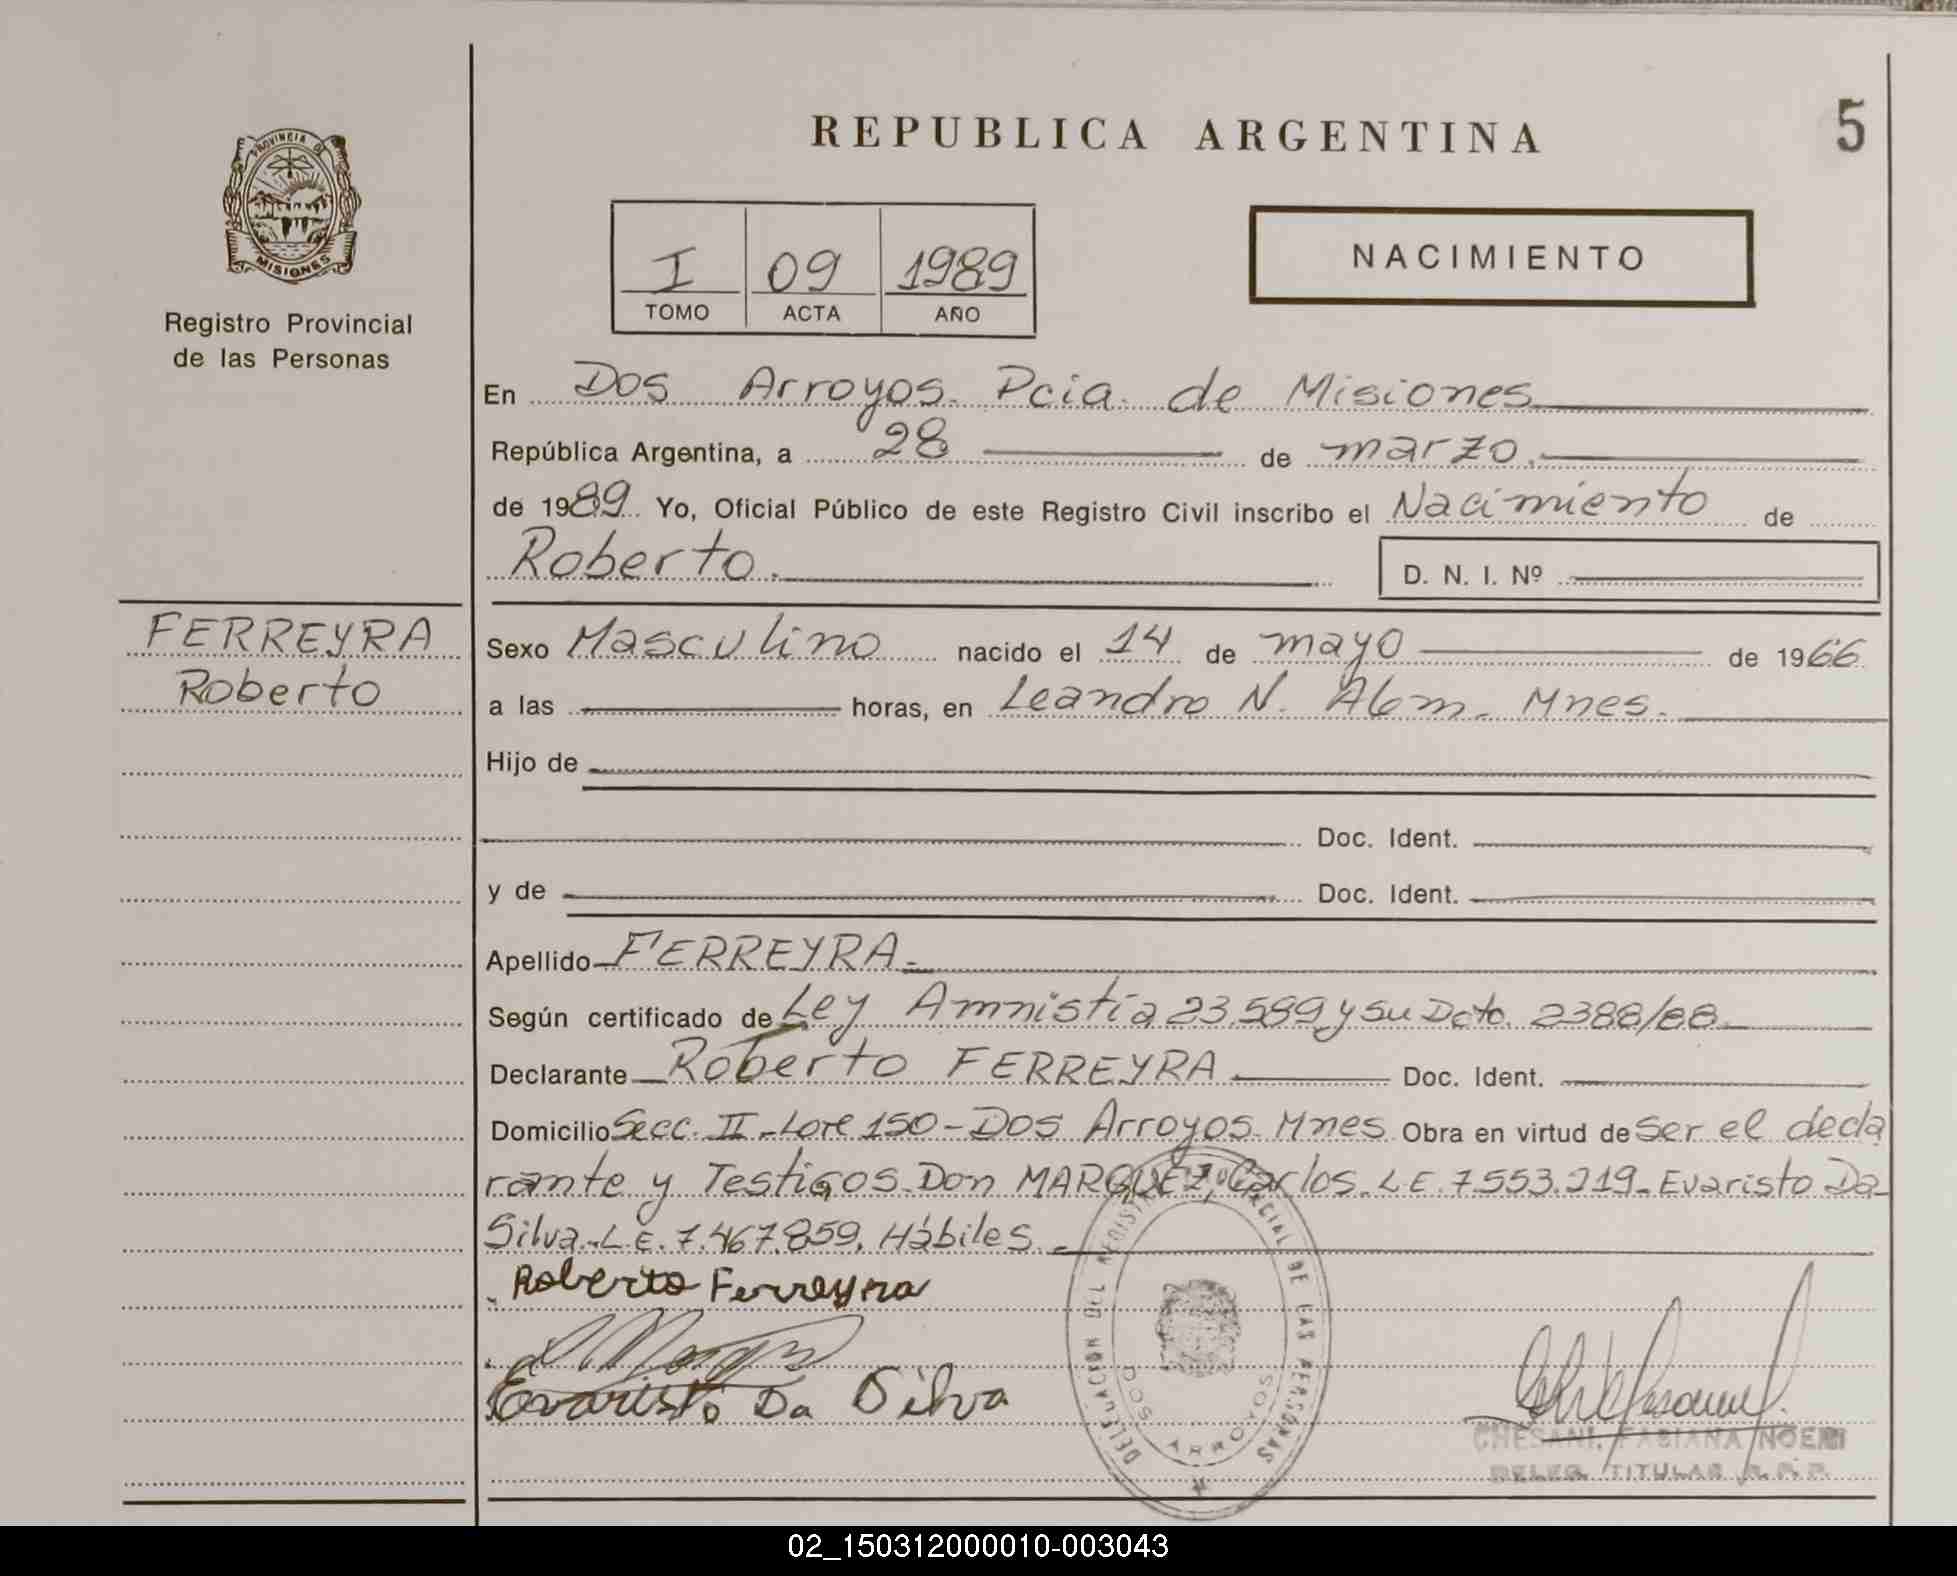 REPUBLICA ARGENTINA
5
PROVINCIA DE
MISIONES
Registro Provincial
de las Personas
I 09 1989
TOMO ACTA AÑO
NACIMIENTO
En Dos Arroyos. Pcia. de Misiones
República Argentina, a 28 de marzo.
de 1989. Yo, Oficial Público de este Registro Civil inscribo el Nacimiento de
Roberto. D. N. I. Nº
FERREYRA
Roberto
Sexo Masculino nacido el 14 de mayo de 1966
a las horas, en Leandro N. Alem. Mnes.
Hijo de
Doc. Ident.
y de Doc. Ident.
Apellido FERREYRA.
Según certificado de Ley Amnistía 23.589 y su Dcto. 2388/88
Declarante Roberto FERREYRA Doc. Ident.
Domicilio Secc. II - Lote 150 - Dos Arroyos. Mnes Obra en virtud de ser el decla
rante y Testigos. Don MARQUEZ, Carlos. L E. 7.553.219. Evaristo Da
Silva. L.E. 7.467.859. Hábiles
Roberto Ferreyra
Evaristo Da Silva
DELEGACION DEL REGISTRO PROVINCIAL DE LAS PERSONAS
DOS ARROYOS
CHESANI, FABIANA NOEMI
DELEG. TITULAR R. P. P.
02_150312000010-003043